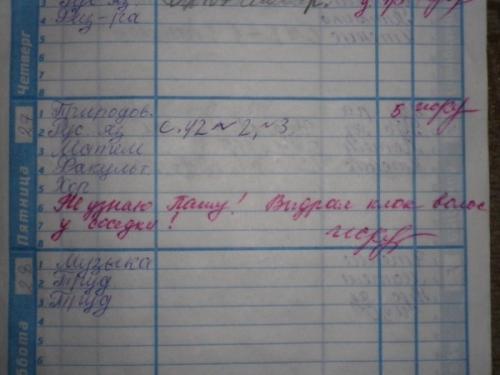 Физ-ра
Четверг
5
6
7
8
27
Пятница
1 Природов. 5
2 Рус. яз с. 42 № 2, № 3
3 Матем
4 Факульт
5 Хор
6 Не узнаю Пашу! Выдрал клок волос
7 у соседки!
8
28
Суббота
1 Музыка
2 Труд
3 Труд
4
5
6